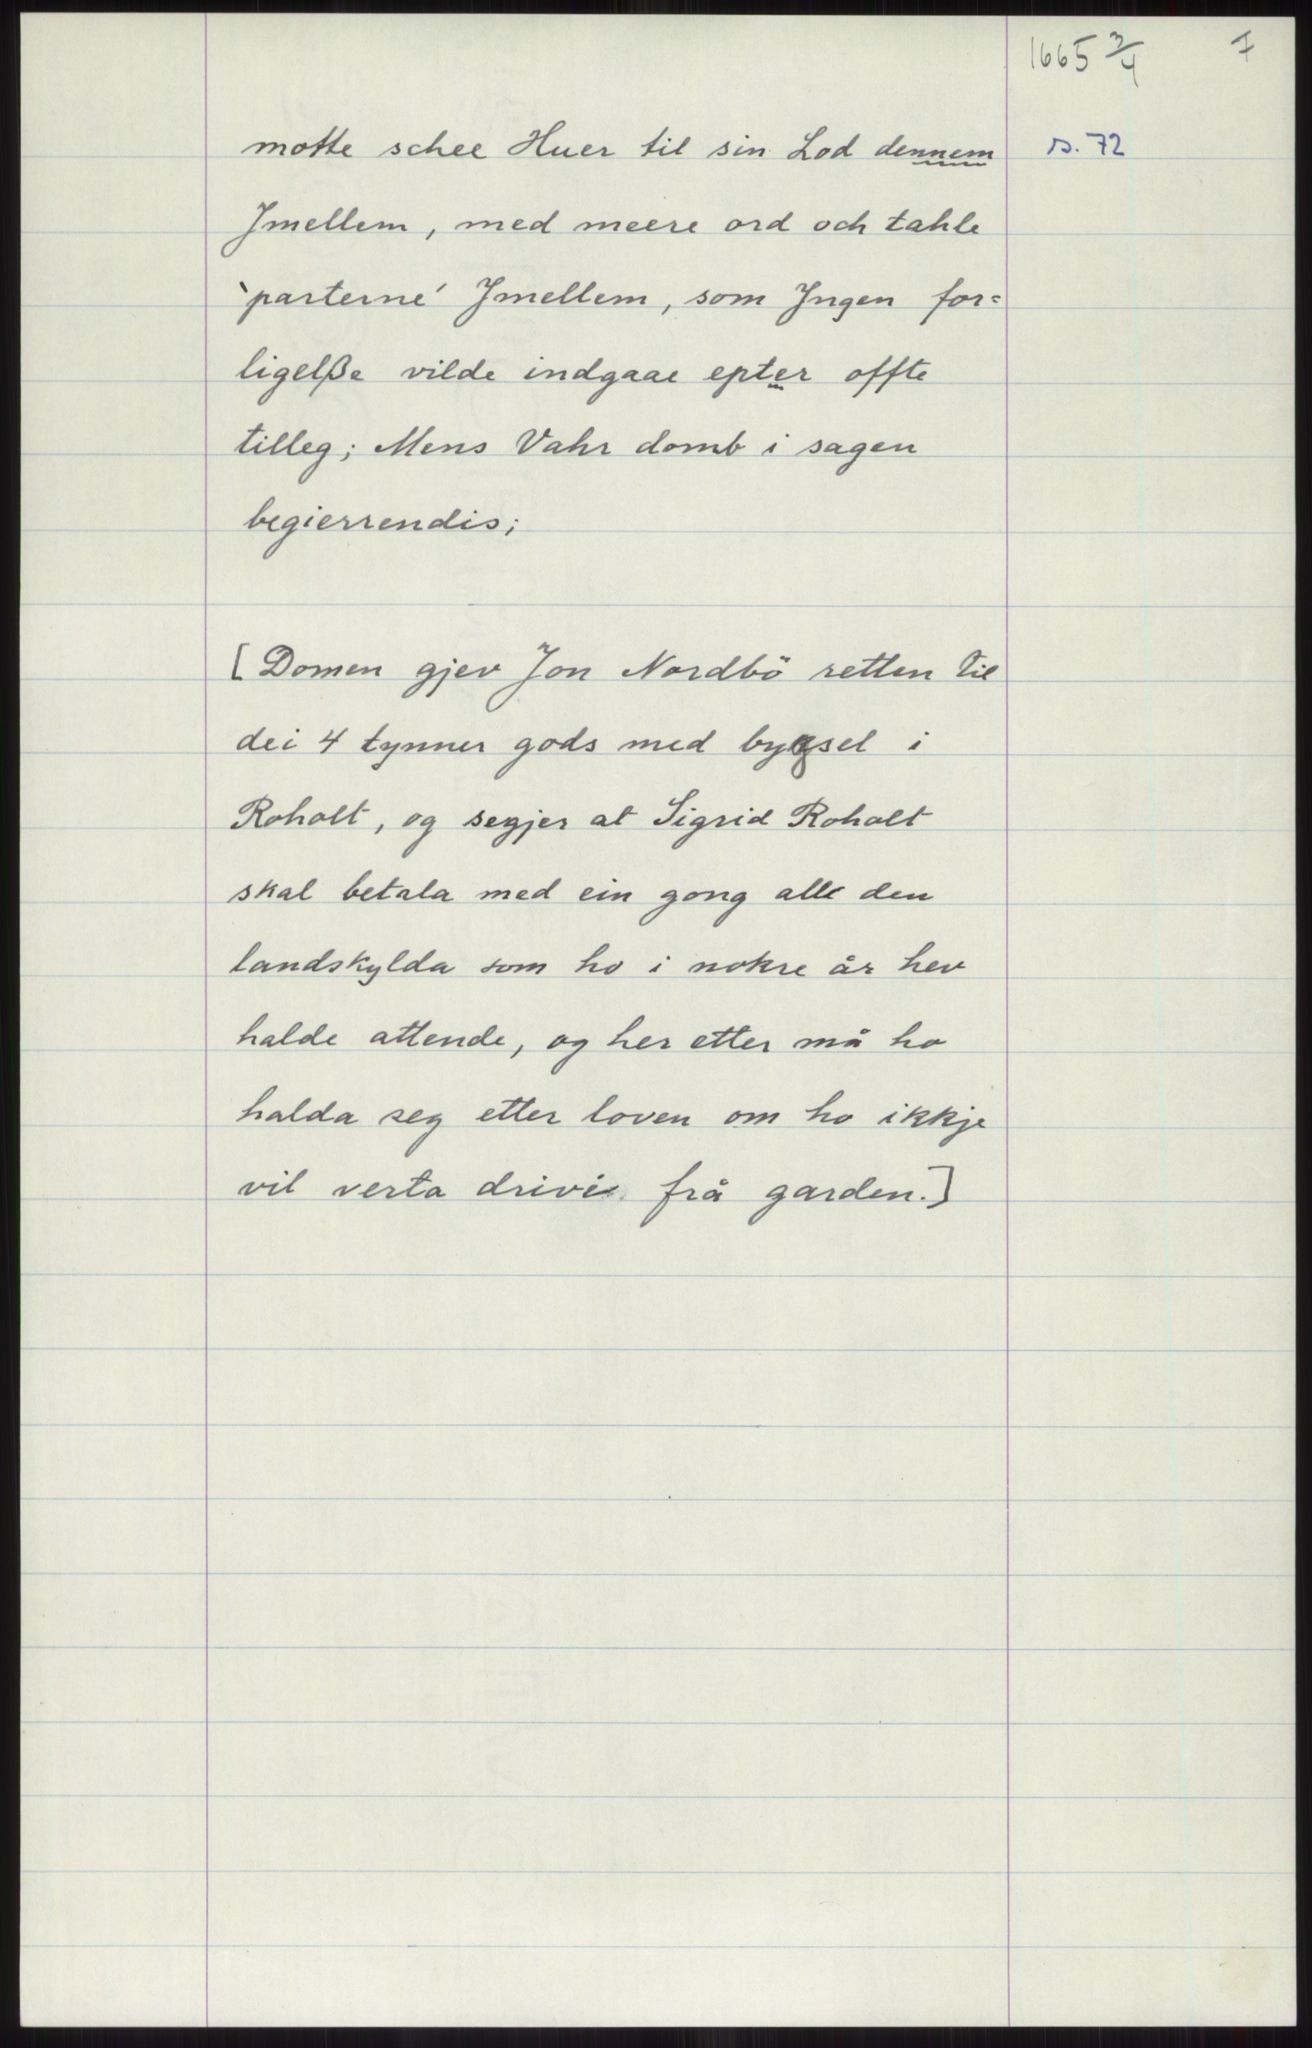 1665 3/4 7
motte schee Huer til sin Lod dennem s. 72
Jmellem, med meere ord och tahle
`parterne´ Jmellem, som Jngen for=
ligelße vilde indgaae epter offte
tilleg; Mens Vahr domb i sagen
begierrendis;
[Domen gjev Jon Nordbö retten til
dei 4 tynner gods med bygsel i
Roholt, og segjer at Sigrid Roholt
skal betala med ein gong all den
landskylda som ho i nokre år hev
halde attende, og her etter må ho
halda seg etter loven om ho ikkje
vil verta drivi frå garden.]